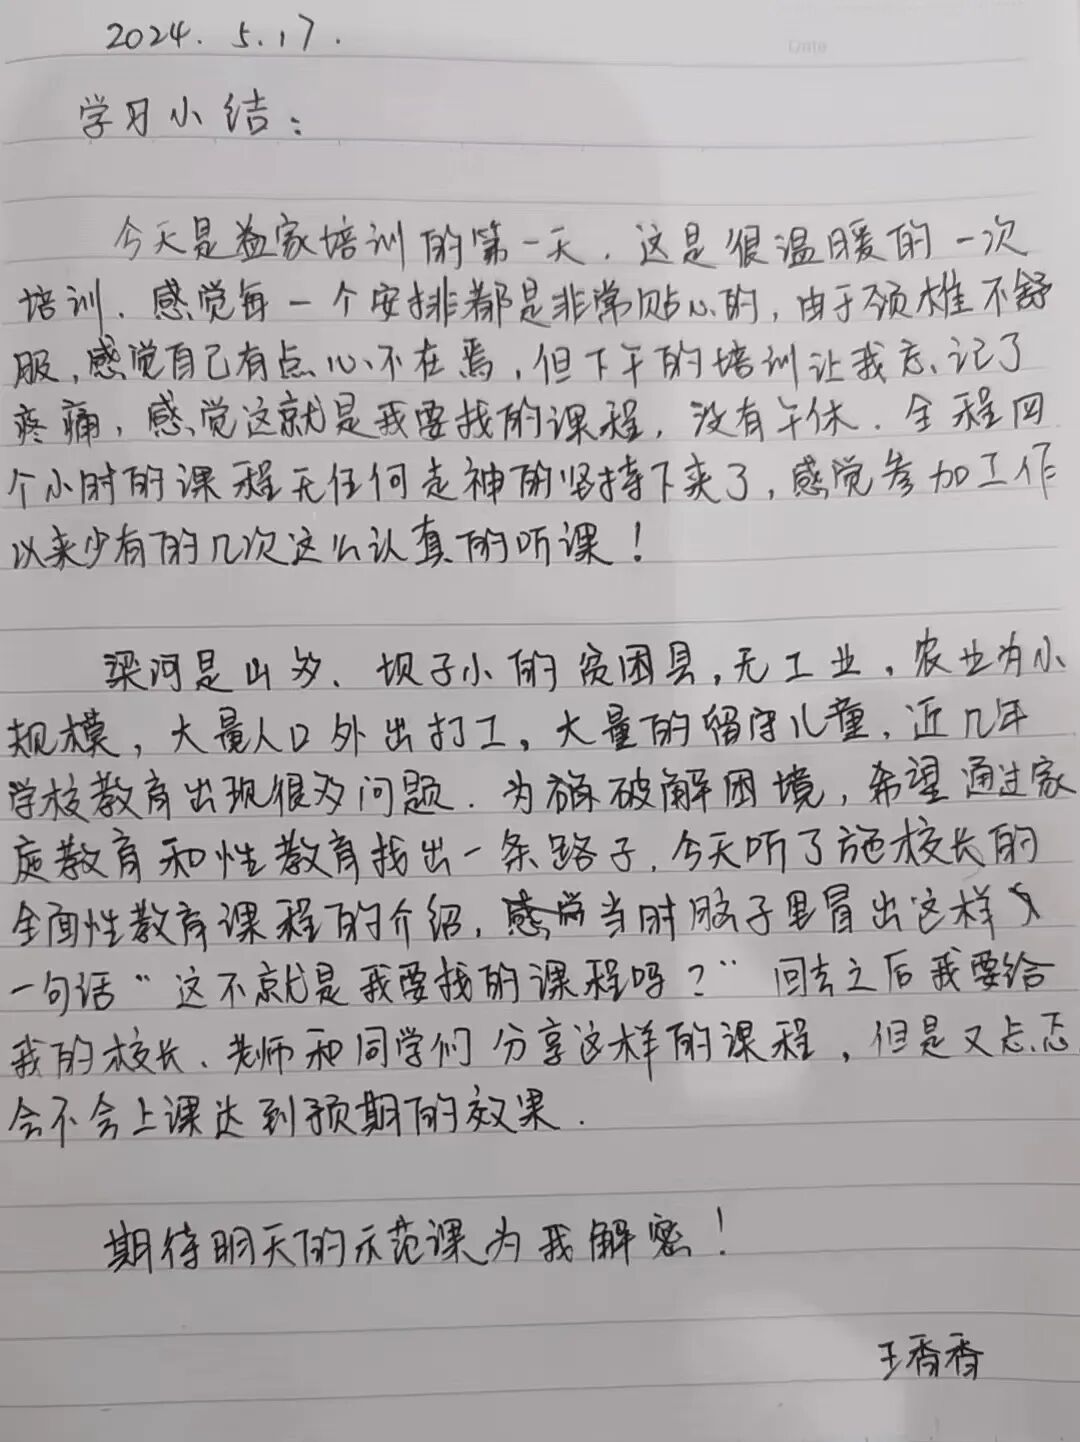 Date
2024. 5.17.
学习小结：
今天是益家培训的第一天．这是很温暖的一次
培训．感觉每一个安排都是非常贴心的，由于颈椎不舒
服，感觉自己有点心不在焉，但下午的培训让我忘记了
疼痛，感觉这就是我要找的课程，没有午休．全程四
个小时的课程无任何走神的坚持下来了，感觉参加工作
以来少有的几次这么认真的听课！
梁河是山多、坝子小的贫困县，无工业，农业为小
规模，大量人口外出打工，大量的留守儿童，近几年
学校教育出现很多问题．为破解困境，希望通过家
庭教育和性教育找出一条路子．今天听了施校长的
全面性教育课程的介绍，感觉当时脑子里冒出这样
一句话“这不就是我要找的课程吗？”回去之后我要给
我的校长、老师和同学们分享这样的课程，但是又忐忑
会不会上课达到预期的效果．
期待明天的示范课为我解密！
王香香